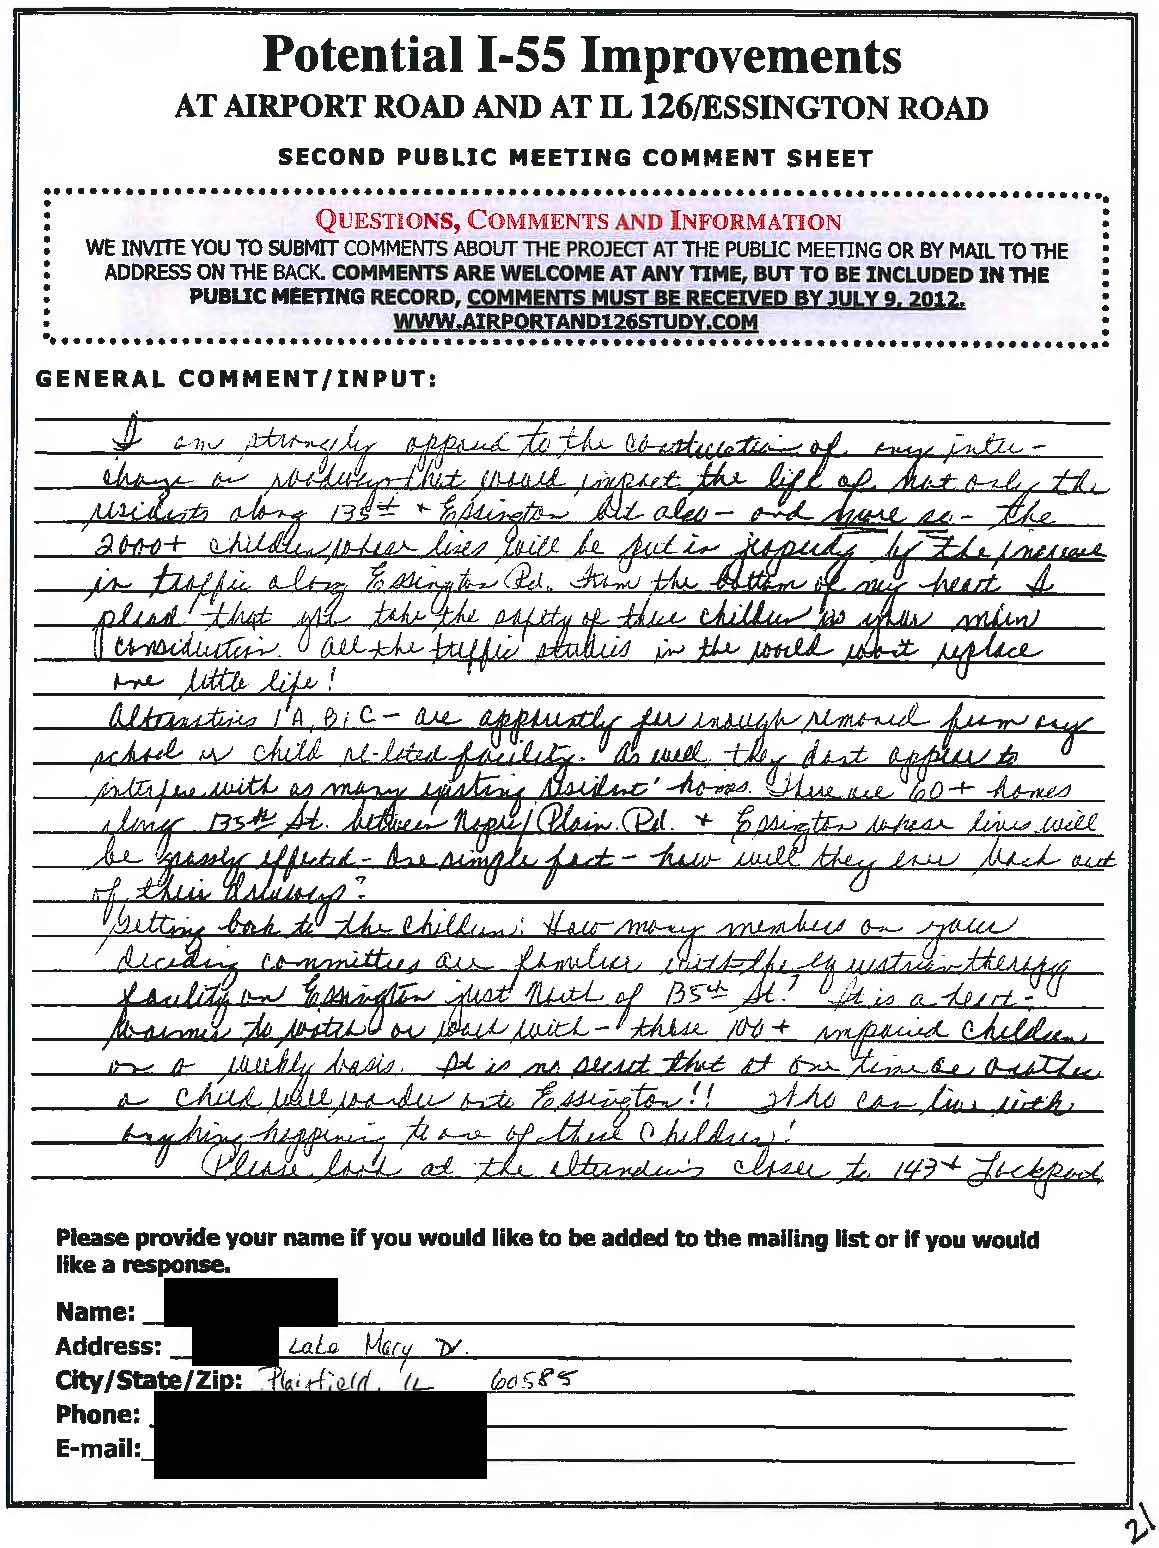 Potential I-55 Improvements
AT AIRPORT ROAD AND AT IL 126/ESSINGTON ROAD
SECOND PUBLIC MEETING COMMENT SHEET
QUESTIONS, COMMENTS AND INFORMATION
WE INVITE YOU TO SUBMIT COMMENTS ABOUT THE PROJECT AT THE PUBLIC MEETING OR BY MAIL TO THE
ADDRESS ON THE BACK. COMMENTS ARE WELCOME AT ANY TIME, BUT TO BE INCLUDED IN THE
PUBLIC MEETING RECORD, COMMENTS MUST BE RECEIVED BY JULY 9, 2012.
WWW.AIRPORTAND126STUDY.COM
GENERAL COMMENT/INPUT:
I am strongly opposed to the construction of any inter-
change or roadways that would impact the life of not only the
residents along 135th + Essington but also - and more so - the
2000+ children whose lives will be put in jeopardy by the increase
in traffic along Essington Rd. From the bottom of my heart I
plead that you take the safety of these children as your main
consideration. All the traffic studies in the world won't replace
one little life!
Alternatives 1 A, B, C - are apparently far enough removed from any
school or child re-lated facility. As well, they don't appear to
interfere with as many existing resident' homes. There are 60+ homes
along 135th St. between Naper/Plain. Rd. + Essington whose lives will
be grossly effected - One simple fact - how will they ever back out
of their driveways?
Getting back to the children: How many members on your
deciding committees are familiar with the equestrian therapy
facility on Essington just North of 135th St.? It is a heart-
warmer to watch or work with - these 100+ impaired children
on a weekly basis. It is no secret that at one time or another
a child will wander onto Essington!! Who can live with
anything happening to one of these children!
Please look at the closer to 143 + Lockport
Please provide your name if you would like to be added to the mailing list or if you would
like a response.
Name:
Address: Lake Mary Dr.
City/State/Zip: Plainfield, IL 60585
Phone:
E-mail:
21